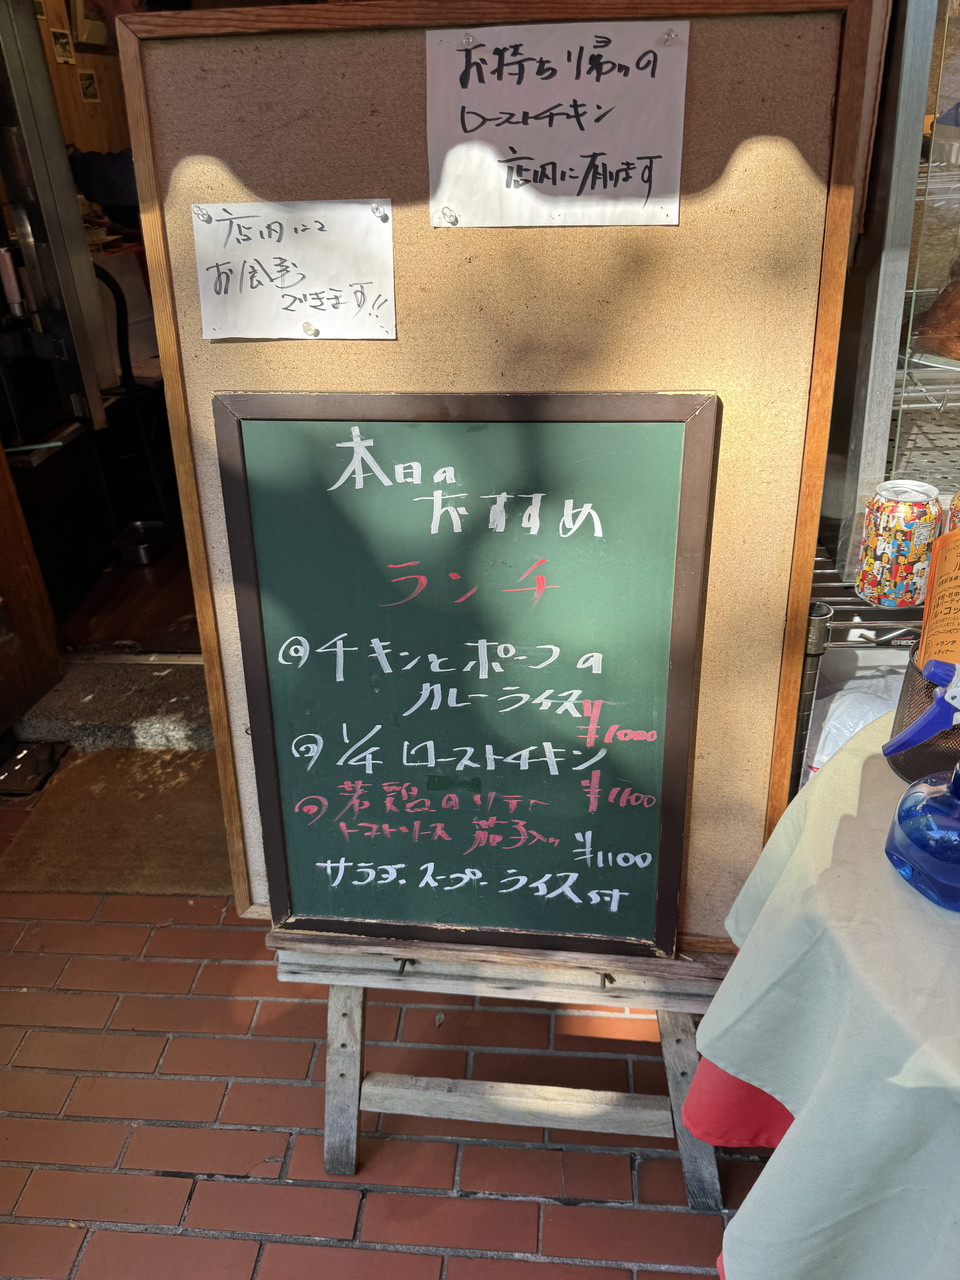 お持ち帰りの
ローストチキン
店内に有ります
店内にて
お食事
できます!!
本日の
おすすめ
ランチ
チキンとポークの
カレーライス
¥1000
1/4 ローストチキン
¥1100
若鶏のソテー
トマトソース 茄子入り
¥1100
サラダ・スープ・ライス付